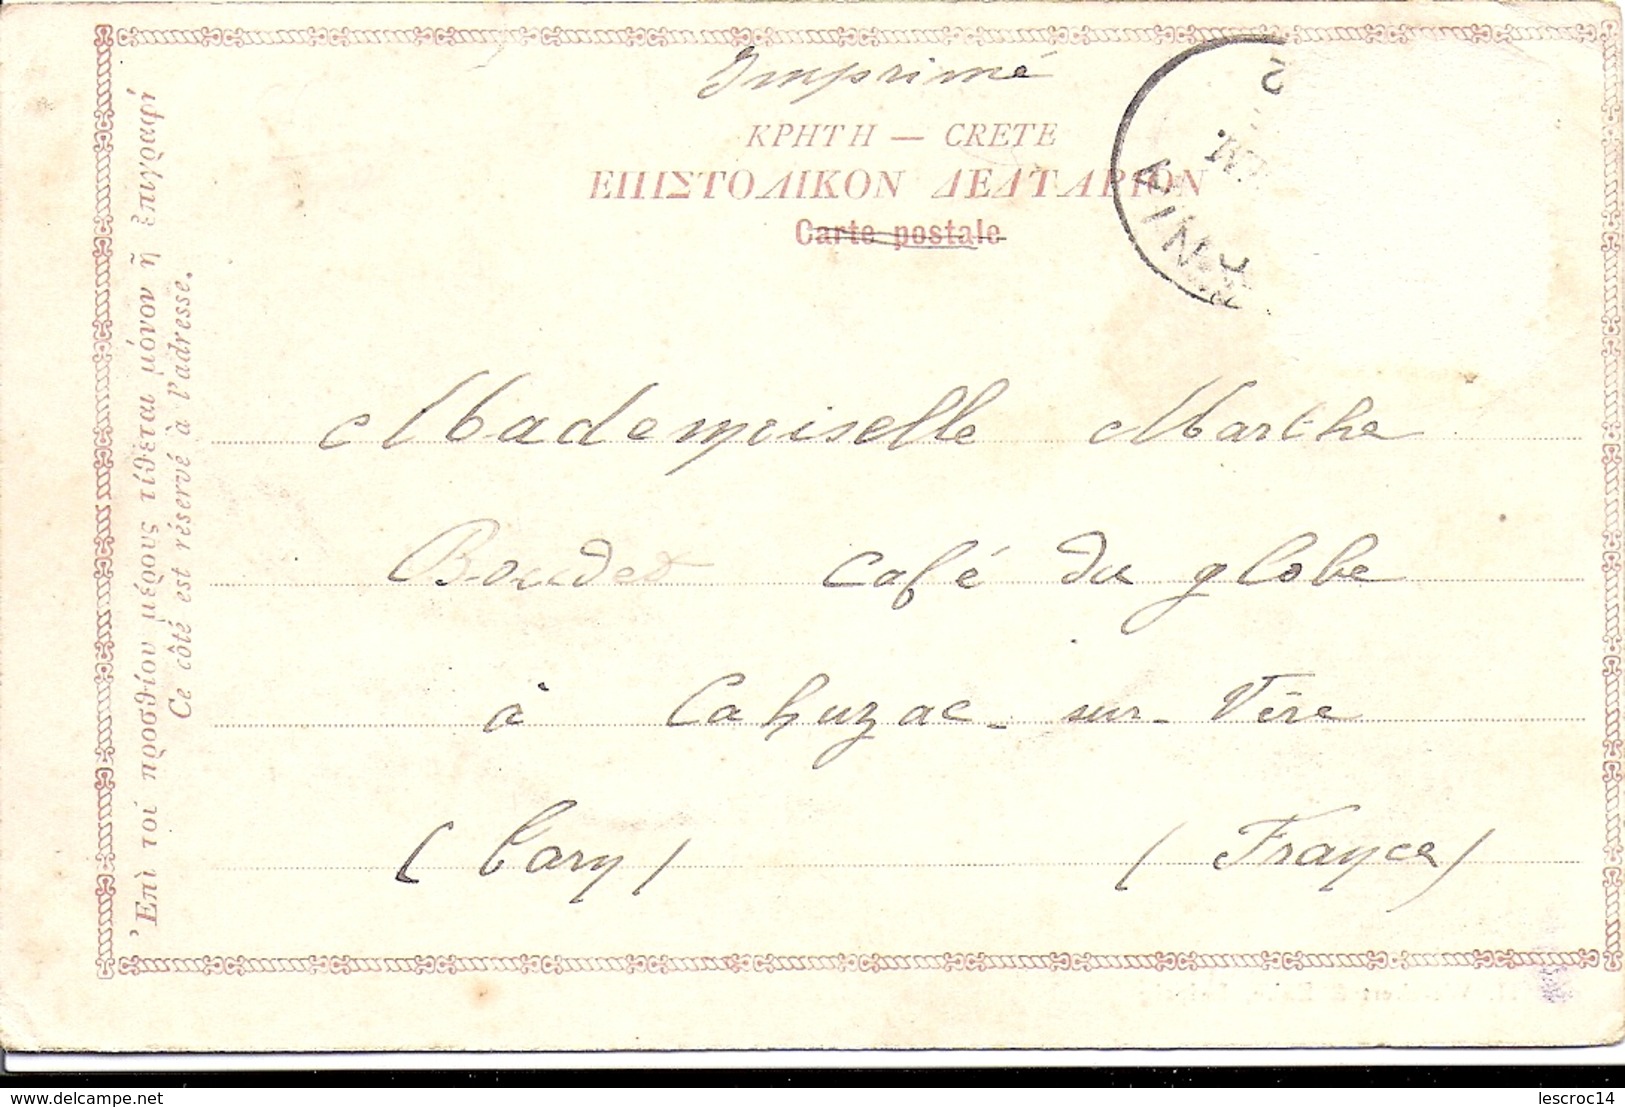 Imprimé
ΚΡΗΤΗ — CRETE
ΕΠΙΣΤΟΛΙΚΟΝ ΔΕΛΤΑΡΙΟΝ
Carte postale
ΧΑΝΙΑ
2
Mademoiselle Marthe
Boudet café du globe
à Cahuzac-sur-Vère
(Tarn) (France)
Ἐπὶ τοῦ προσθίου μέρους τίθεται μόνον ἡ ἐπιγραφὴ
Ce côté est réservé à l'adresse.
delcampe.net
lescroc14